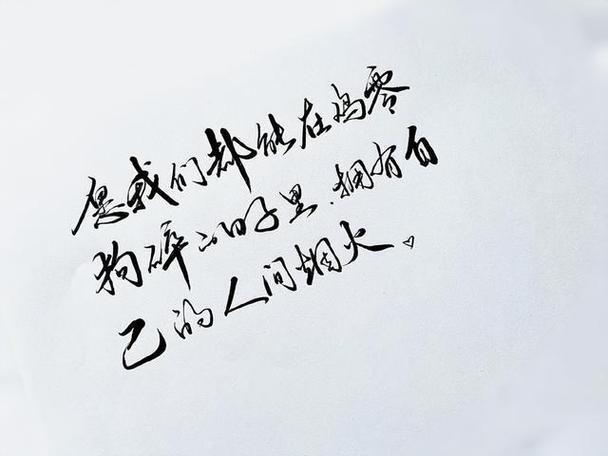 愿我们都能在鸡零
狗碎的日子里，拥有自
己的人间烟火。